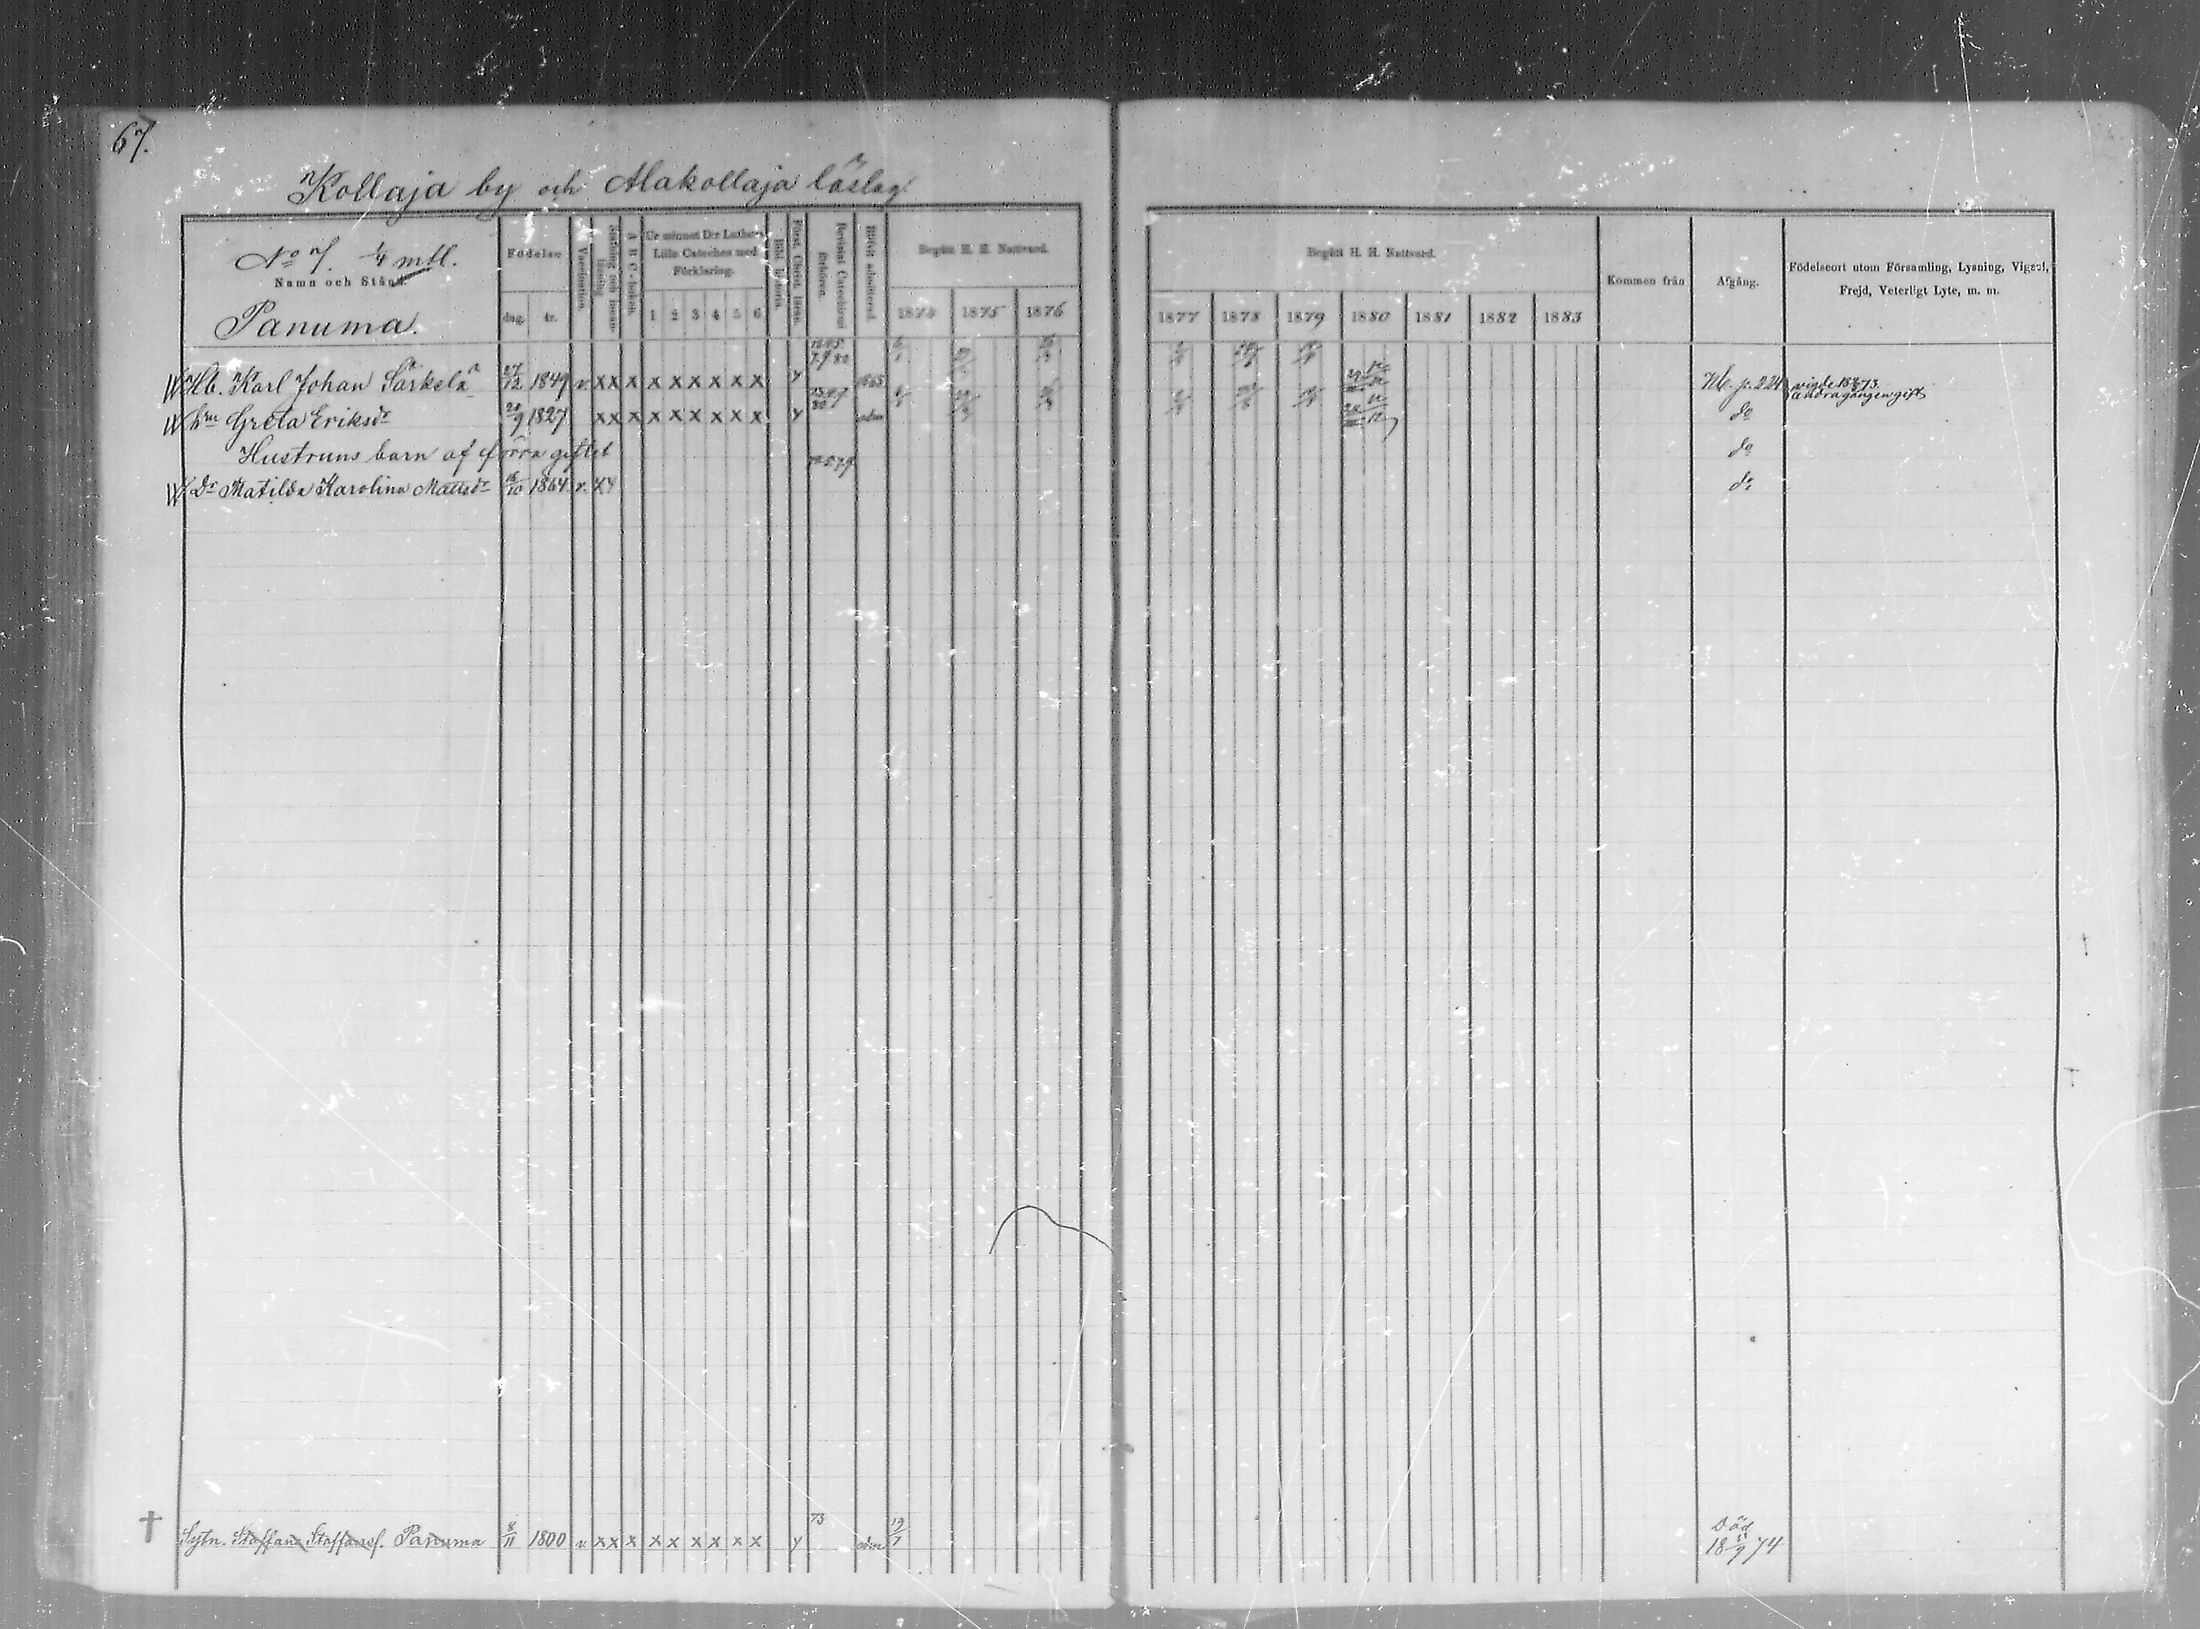 67.
Kollaja by och Alakollaja läslag
No 7. 1/4 mtl.
Namn och Stånd.
Panuma.
Födelse
dag. år.
Vaccination.
A B C-boken.
Ur minnet D:r Luthers Lilla Cateches med Förklaring.
1 2 3 4 5 6
Bibl. historia.
Begått H. H. Nattvard.
1874 1875 1876
Begått H. H. Nattvard.
1877 1878 1879 1880 1881 1882 1883
Kommen från
Afgång.
Födelseort utom Församling, Lysning, Vigsel, Frejd, Veterligt Lyte, m. m.
Hb. Karl Johan Särkelä 27/12 1849 v. x x x x x x x x x y 1865 andra gången gift
hm Greta Eriksdr 20/9 1827 x x x x x x x x x y adm do
Hustruns barn af förra giftet do
Dr Matilda Karolina Mattsdr 1864 v. do
† Sytn. Staffan Staffanss. Panuma 8/11 1800 v. x x x x x x x x x y 73 adm 19/7 Död 18 74